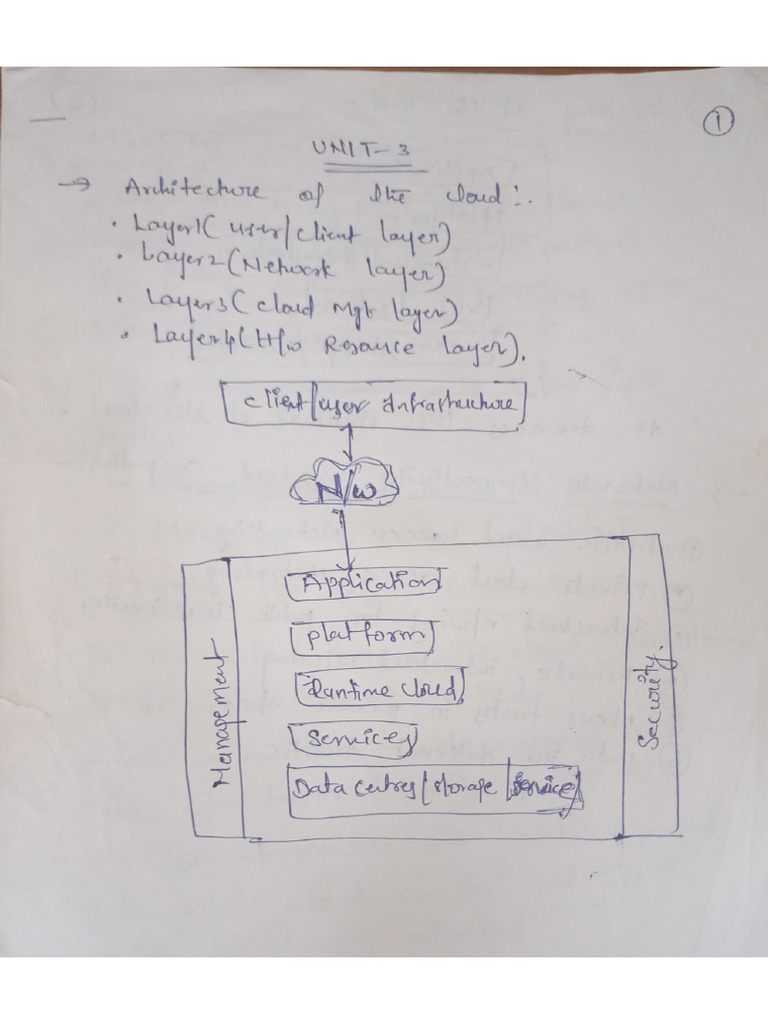 ①
UNIT-3
→ Architecture of the cloud:.
• Layer1( user/client layer)
• Layer2(Network layer)
• Layer3( cloud Mgt layer)
• Layer4(H/w Resource layer).
client/user Infrastructure
N/w
Application
platform
Runtime cloud
Services
Data centres/storage/service
Management
Security.